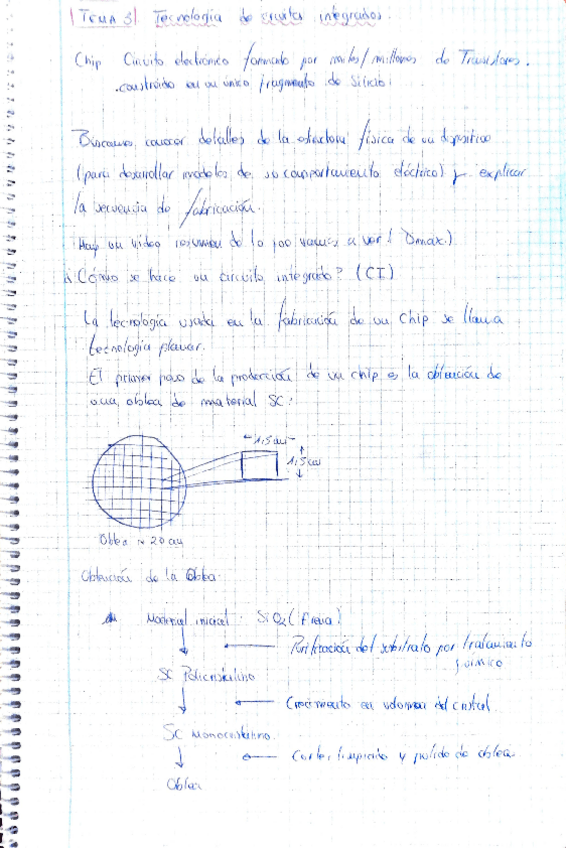 Tema 3 Tecnología de circuitos integrados.
Chip Circuito electrónico formado por miles/millones de Transistores.
construido en un único fragmento de Silicio.
Buscamos conocer detalles de la estructura física de un dispositivo
(para desarrollar modelos de su comportamiento eléctrico) y explicar
la secuencia de fabricación.
Hay un video resumen de lo que vamos a ver!
¿Cómo se hace un circuito integrado? (CI)
La tecnología usada en la fabricación de un Chip se llama
tecnología planar.
El primer paso de la producción de un chip es la obtención de
una oblea de material SC:
1,5 cm
1,5 cm
Oblea ~ 20 cm
Obtención de la Oblea:
Material inicial: SiO2 (
Purificación del substrato por tratamiento
químico
SC Policristalino
Crecimiento en volumen del cristal.
SC Monocristalino.
Corte, limpiado y pulido de oblea.
Oblea